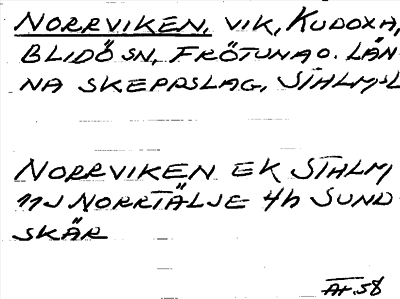 NORRVIKEN, VIK, KUDOXA,
BLIDÖ SN, FRÖTUNA O. LÄN-
NA SKEPPSLAG, STHLMS L
NORRVIKEN EK STHLM
11J NORRTÄLJE 4h SUND
SKÄR
ÄF. 58